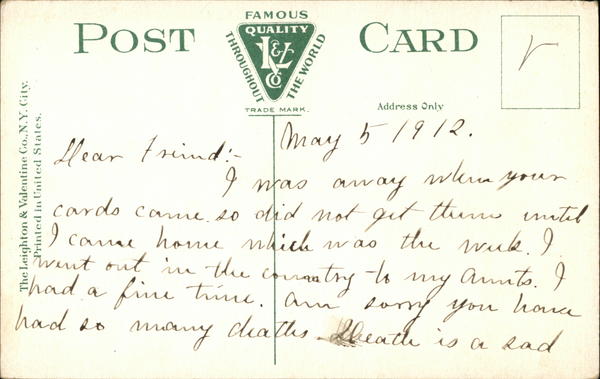 POST CARD
FAMOUS
QUALITY
L&V
CO
THROUGHOUT THE WORLD
TRADE MARK.
Address Only
The Leighton & Valentine Co., N.Y. City.
Printed in United States.
May 5 1912.
Dear Friend:-
I was away when your
cards came so did not get them until
I came home which was the week. I
went out in the country to my Aunts. I
had a fine time. Am sorry you have
had so many deaths. Death is a sad